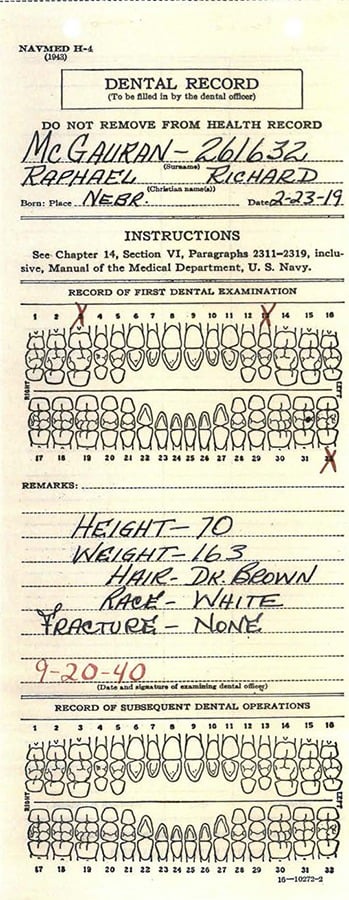 NAVMED H-4
(1943)
DENTAL RECORD
(To be filled in by the dental officer)
DO NOT REMOVE FROM HEALTH RECORD
McGAURAN- 261632
(Surname)
RAPHAEL RICHARD
(Christian name(s))
Born: Place NEBR. Date 2-23-19
INSTRUCTIONS
See Chapter 14, Section VI, Paragraphs 2311-2319, inclu-
sive, Manual of the Medical Department, U. S. Navy.
RECORD OF FIRST DENTAL EXAMINATION
1 2 4 5 6 7 8 9 10 11 12 13 14 15 16
RIGHT LEFT
17 18 19 20 21 22 23 24 25 26 27 28 29 30 31 32
REMARKS:
HEIGHT- 70
WEIGHT- 163
HAIR- DK. BROWN
RACE- WHITE
FRACTURE- NONE
9-20-40
(Date and signature of examining dental officer)
RECORD OF SUBSEQUENT DENTAL OPERATIONS
1 2 3 4 5 6 7 8 9 10 11 12 13 14 15 16
RIGHT LEFT
17 18 19 20 21 22 23 24 25 26 27 28 29 30 31 32
16-10272-2